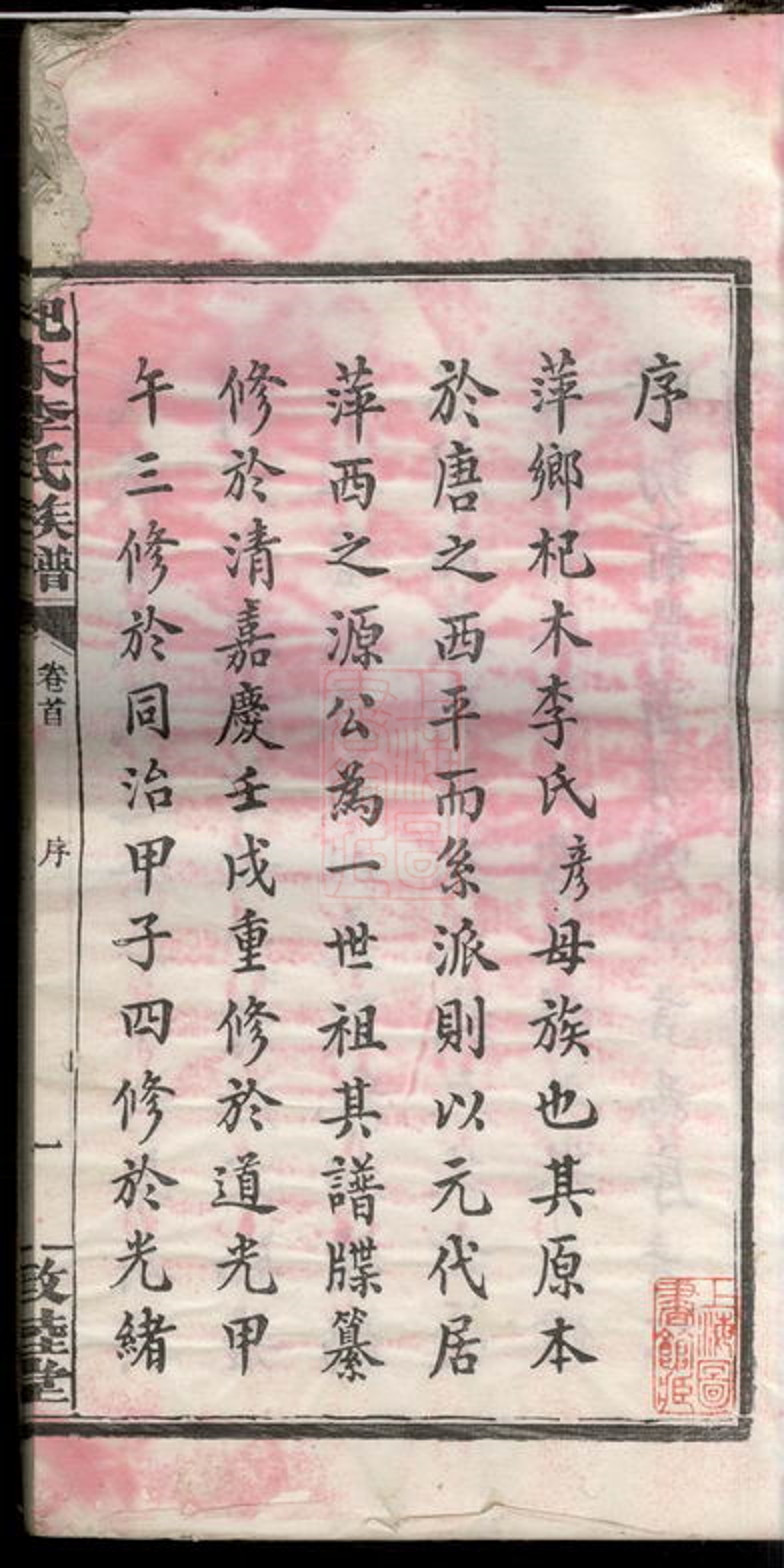 序
萍鄉杞木李氏彥母族也其原本
於唐之西平而系派則以元代居
萍西之源公為一世祖其譜牒纂
修於清嘉慶壬戌重修於道光甲
午三修於同治甲子四修於光緒
杞木李氏族譜
卷首
序
一
敦睦堂
上海圖書館藏